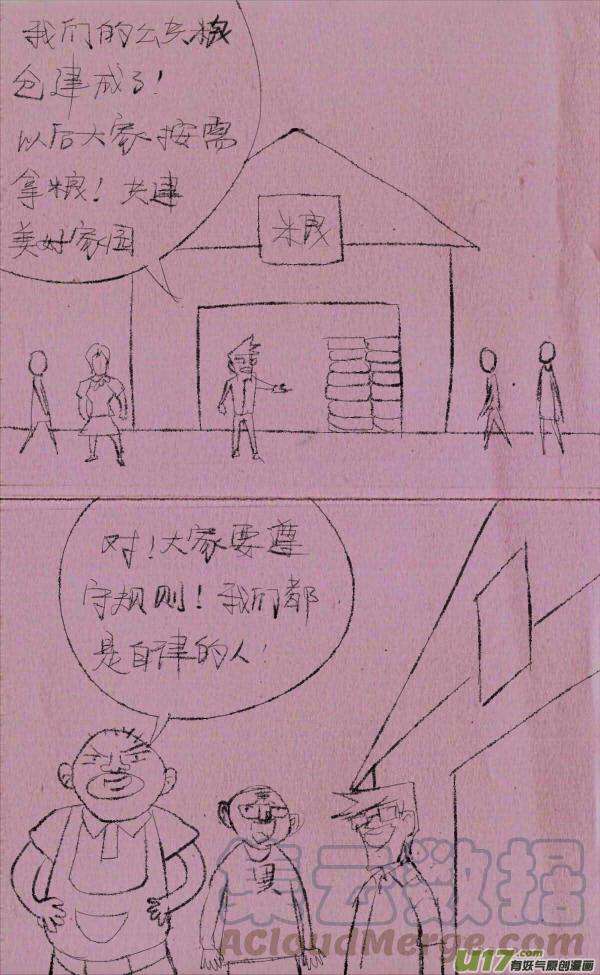 我们的公共粮
仓建成了！
以后大家按需
拿粮！共建
美好家园
粮
对！大家要尊
守规则！我们都
是自律的人！
集云数据
ACloudMerge.com
U17.com
有妖气原创漫画